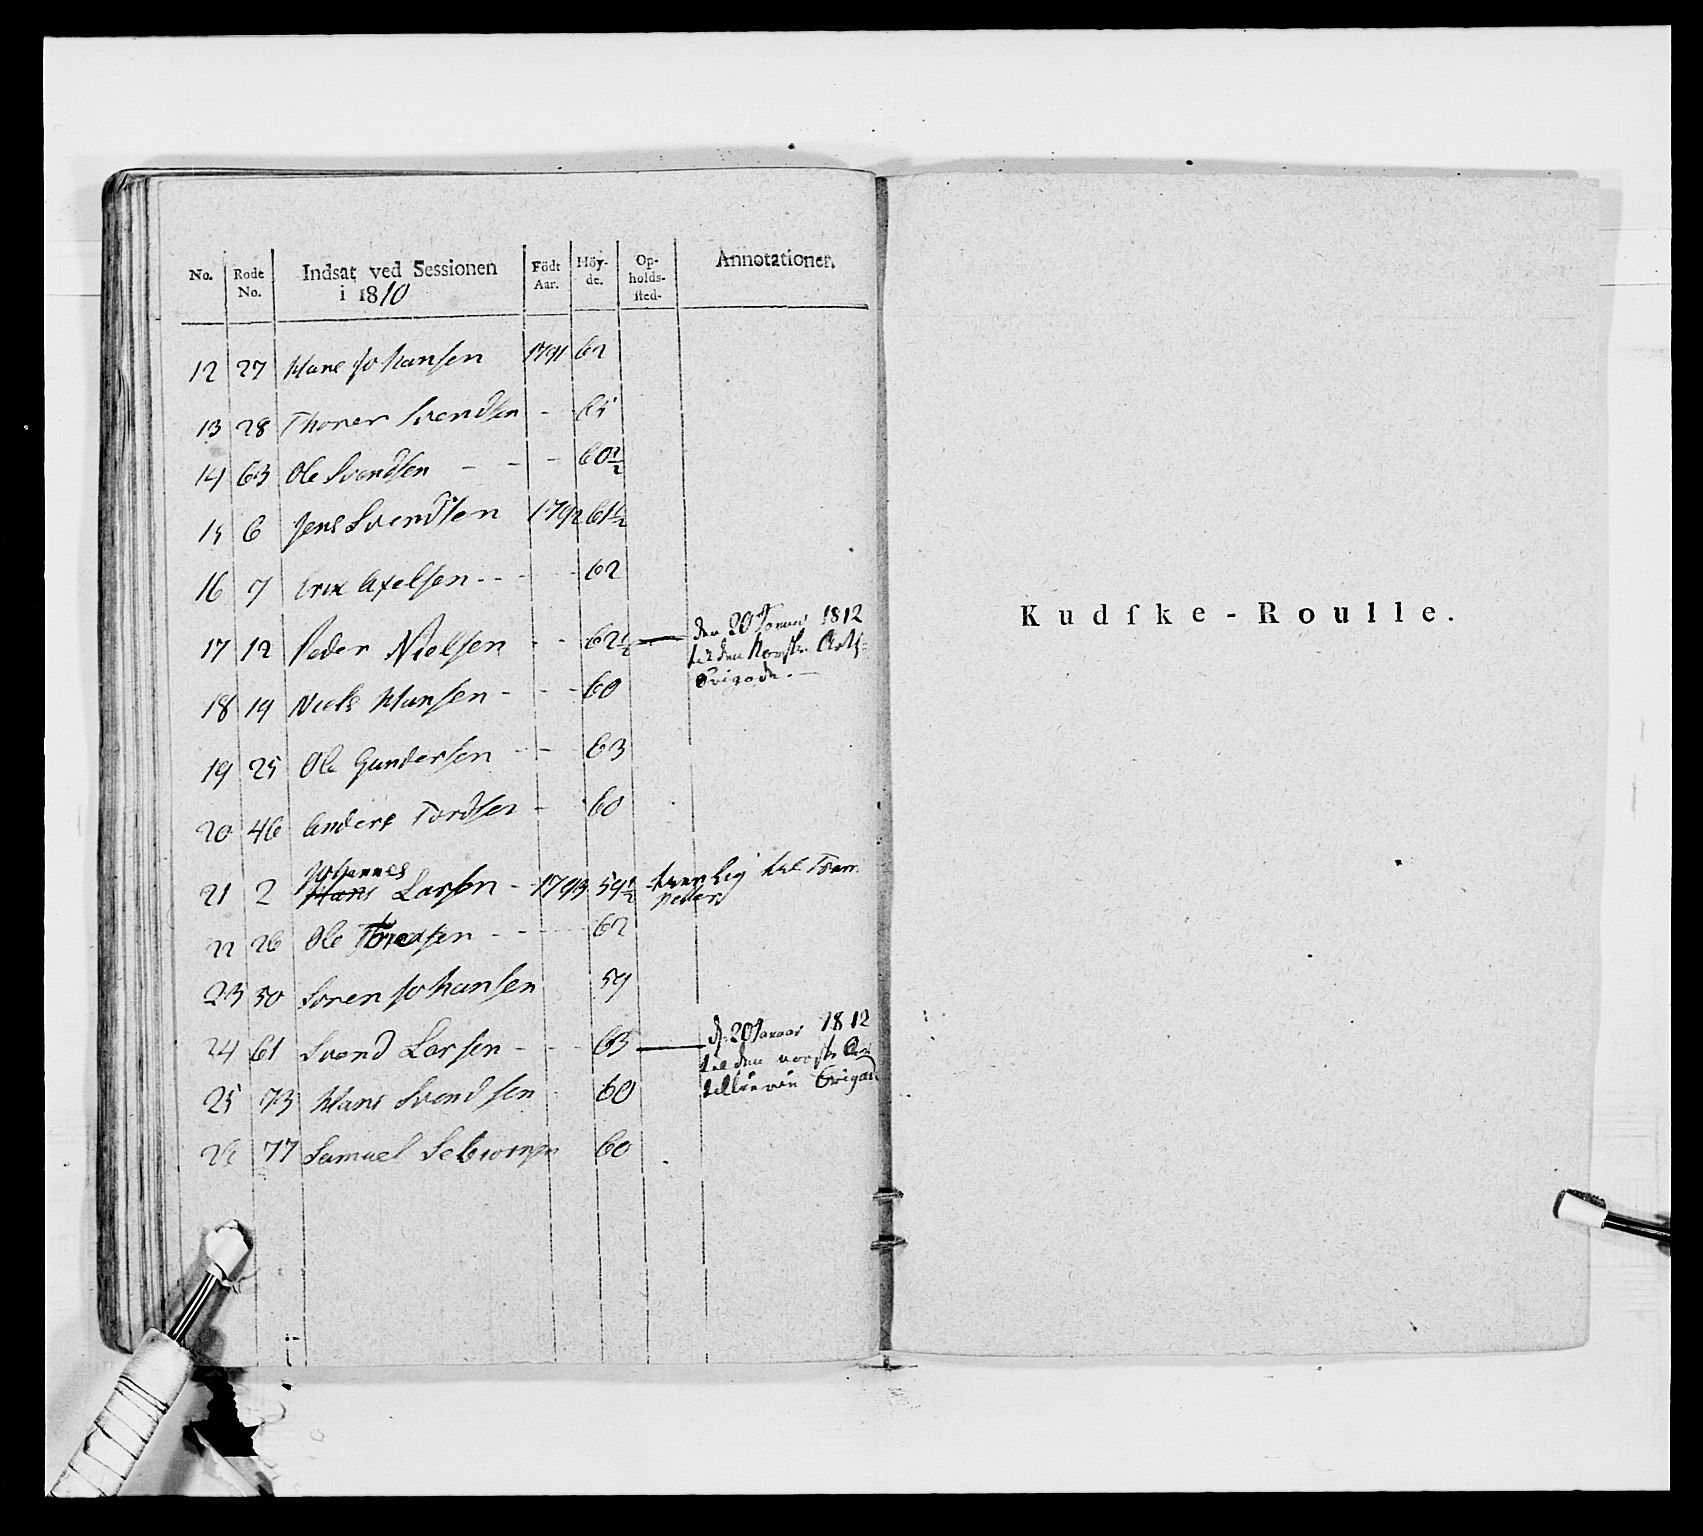 No. Rode No. Indsat ved Sessionen i 1810 Födt Aar. Höy-de. Op-holds-sted- Annotationer.
12 27 Hans Johansen 1791 62
13 28 Thorer Svendsen - 61
14 63 Ole Svendsen - - - 60½
15 6 Jens Svendsen 1792 61½
16 7 Erix Axelsen - - - 62
17 12 Peder Nielsen - - 62½ — den 20 Januar 1812
til den Norske Artl=
Brigade. —
18 19 Niels Hansen - - - 60
19 25 Ole Gundersen - - 63
20 46 Anders Tordsen - 60
Johannes
21 2 Hans Larsen - 1793 59½ tienlig til Trom
peter
22 26 Ole - - - 62
23 50 Soren Johansen 59
24 61 Svend Larsen - - - 63 — d. 20 Januar 1812
til den norske Ar
tillerie Brigad
25 73 Hans Svendsen - 60
26 77 Samuel 60
Kudſke-Roulle.